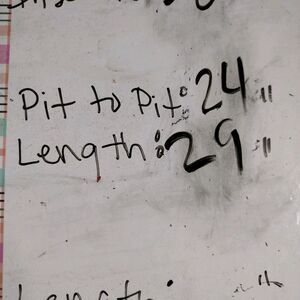 Pit to Pit: 24"
Length: 29"
Length: